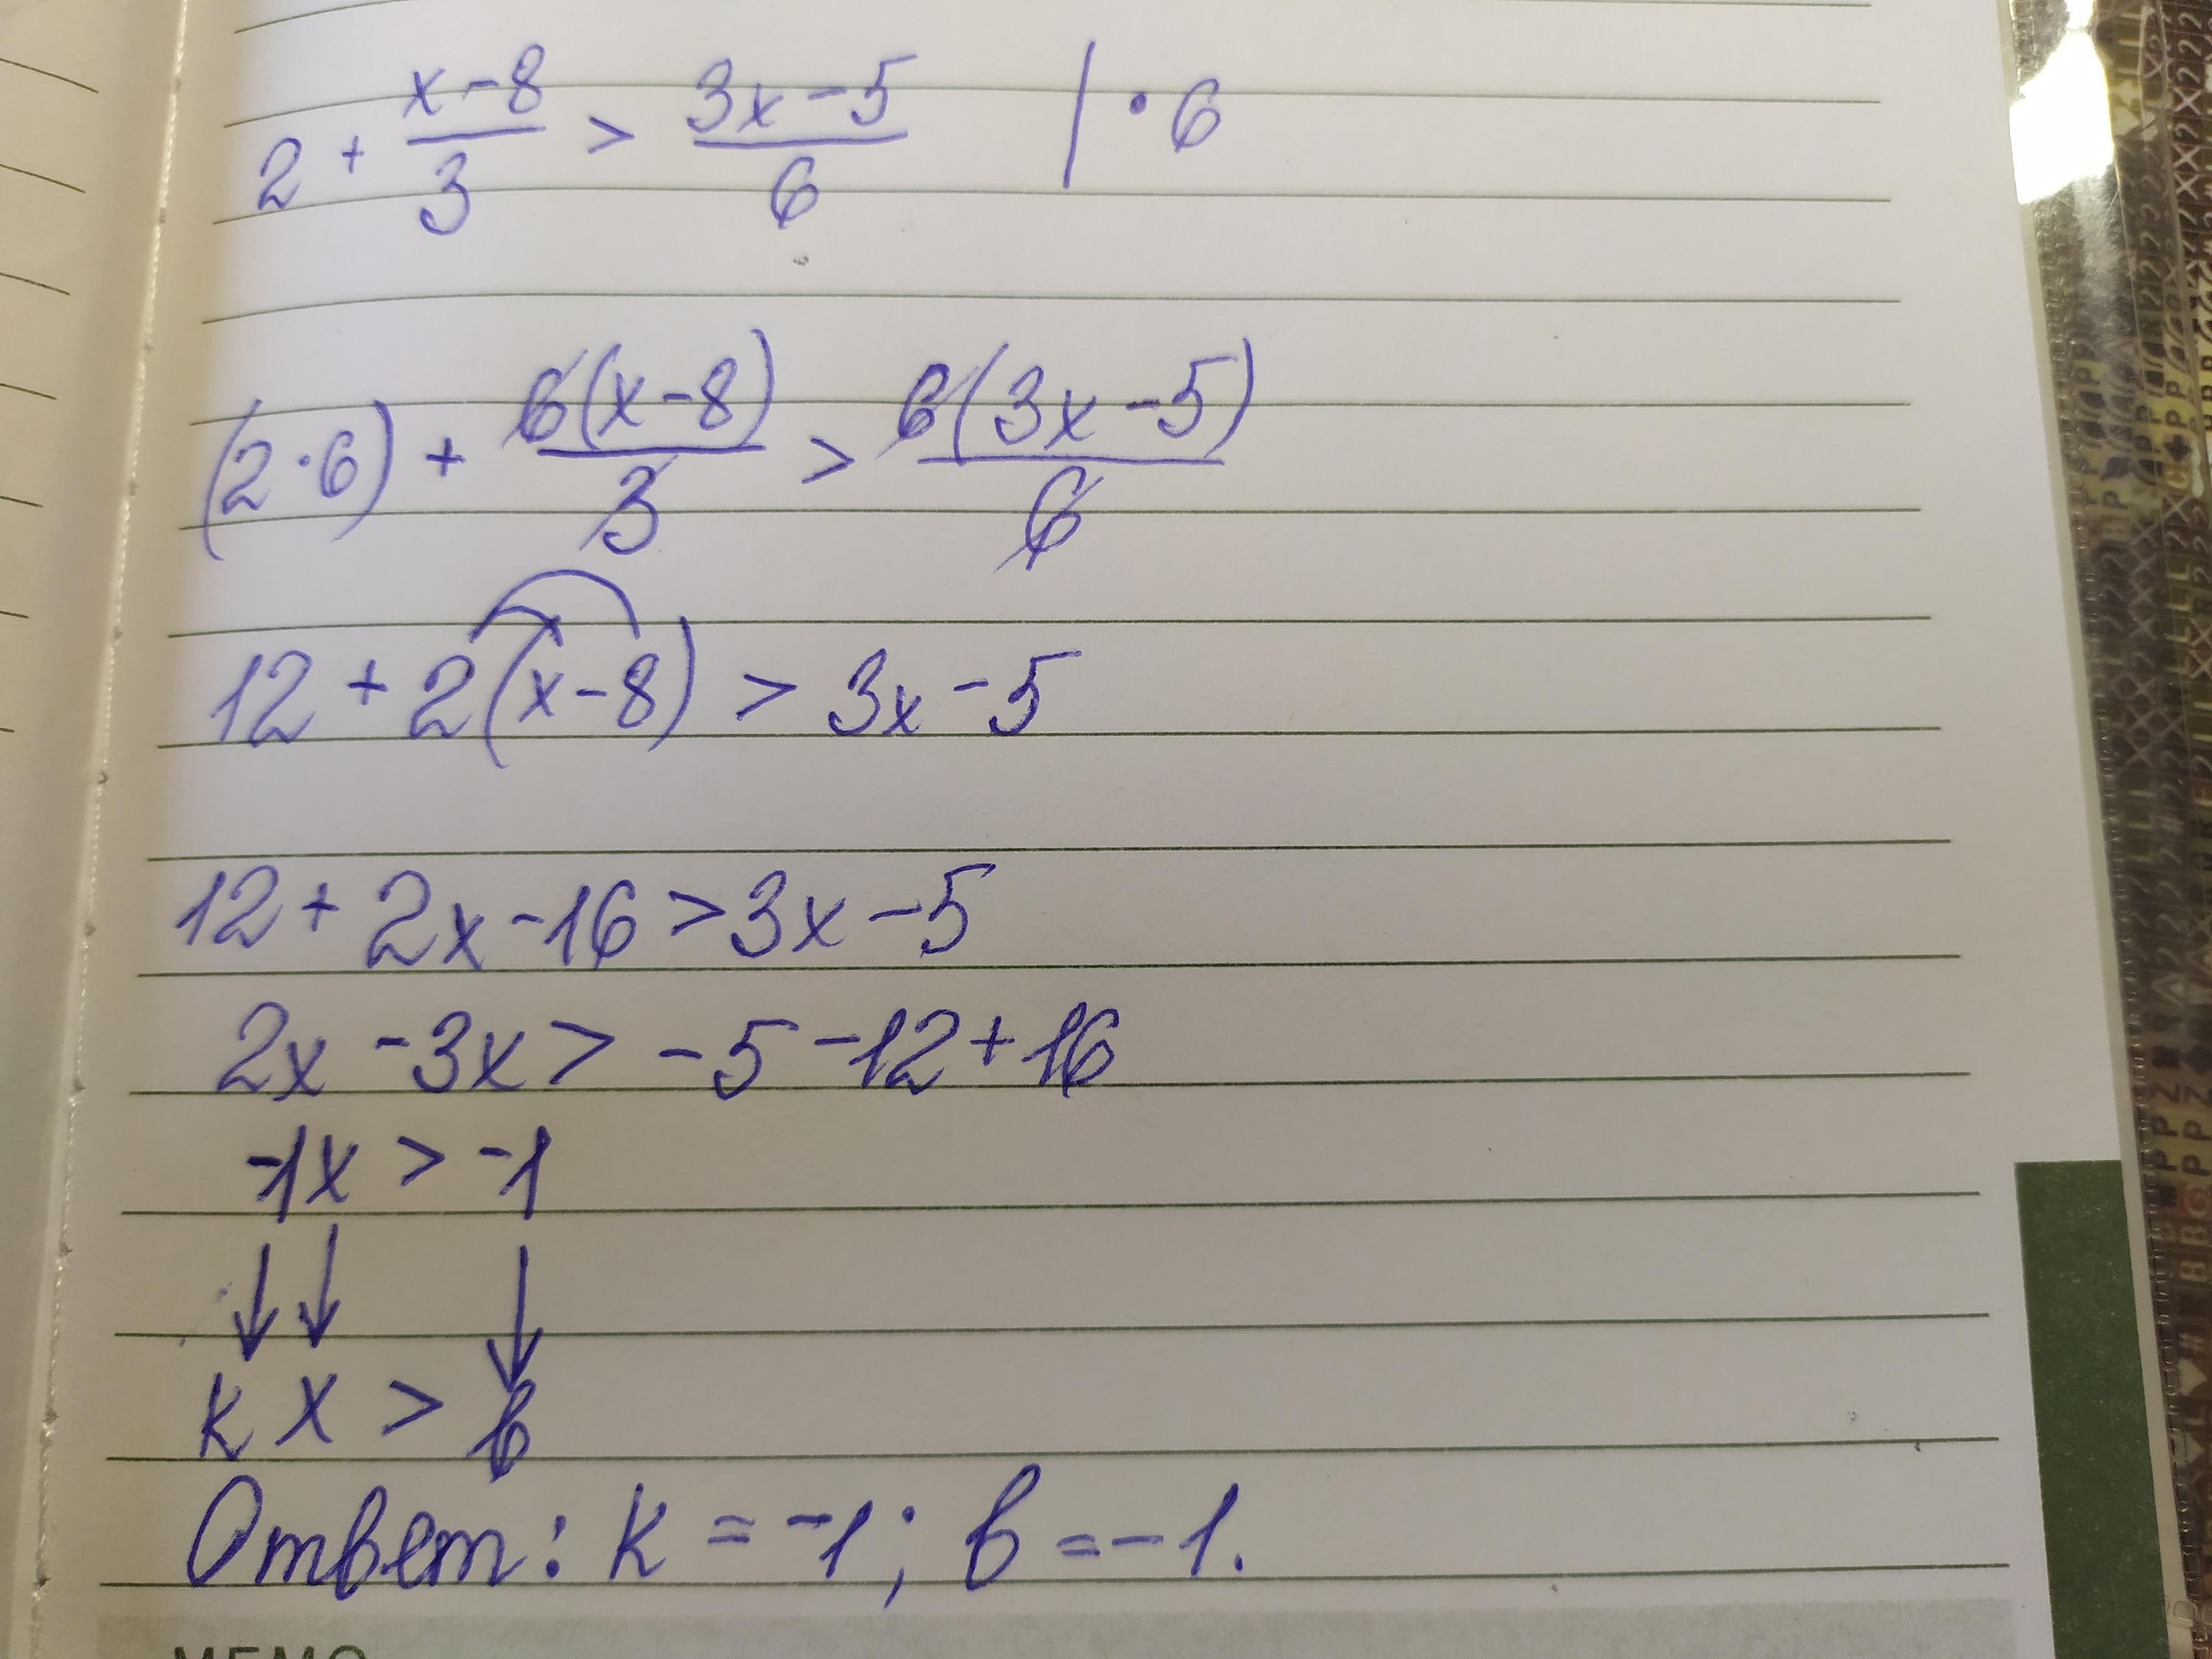 2 + (x-8)/3 > (3x-5)/6 | · 6
(2·6) + 6(x-8)/3 > 6(3x-5)/6
12 + 2(x-8) > 3x-5
12 + 2x-16 > 3x-5
2x - 3x > -5 -12 + 16
-1x > -1
k x > b
Ответ: k = -1; b = -1.